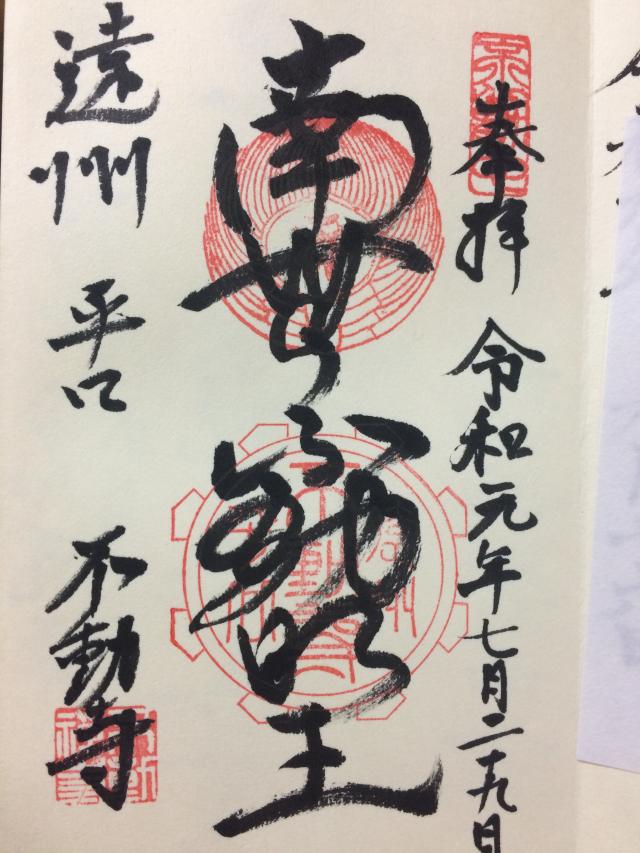 奉拝
令和元年七月二十九日
南無
不動明王
遠州 平口
不動寺